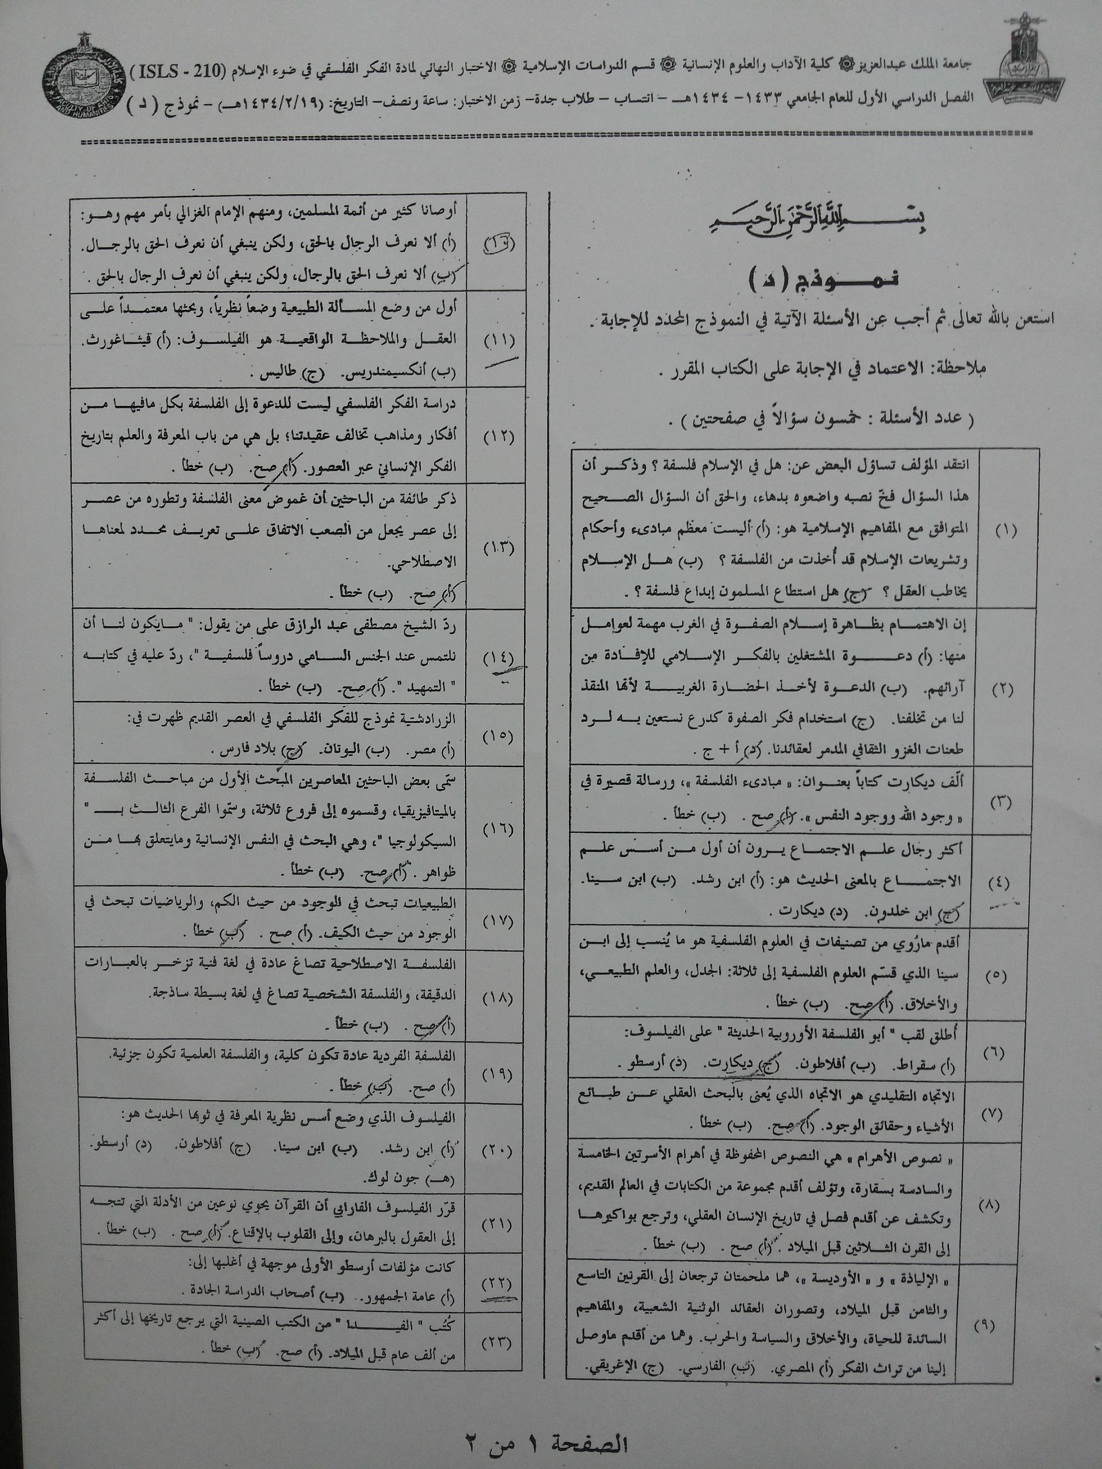 جامعة الملك عبدالعزيز ۞ كلية الآداب والعلوم الإنسانية ۞ قسم الدراسات الإسلامية ۞ الاختبار النهائي لمادة الفكر الفلسفي في ضوء الإسلام (ISLS - 210)
الفصل الدراسي الأول للعام الجامعي ١٤٣٣- ١٤٣٤هـ - انتساب - طلاب جدة- زمن الاختبار: ساعة ونصف- التاريخ: (١٤٣٤/٢/١٩هـ) - نموذج ( د )
بسم الله الرحمن الرحيم
نمـوذج ( د )
استعن بالله تعالى ثم أجب عن الأسئلة الآتية في النموذج المحدد للإجابة .
ملاحظة: الاعتماد في الإجابة على الكتاب المقرر .
( عدد الأسئلة : خمسون سؤالاً في صفحتين ) .
(١)
انتقد المؤلف تساؤل البعض عن: هل في الإسلام فلسفة ؟ وذكر أن
هذا السؤال فخّ نصبه واضعوه بدهاء، والحق أن السؤال الصحيح
المتوافق مع المفاهيم الإسلامية هو: (أ) أليست معظم مبادىء وأحكام
وتشريعات الإسلام قد أُخذت من الفلسفة ؟ (ب) هل الإسلام
يخاطب العقل ؟ (ج) هل استطاع المسلمون إبداع فلسفة ؟ .
(٢)
إن الاهتمام بظاهرة إسلام الصفوة في الغرب مهمة لعوامل
منها: (أ) دعوة المشتغلين بالفكر الإسلامي للإفادة من
آرائهم. (ب) الدعوة لأخذ الحضارة الغربية لأنها المنقذ
لنا من تخلفنا. (ج) استخدام فكر الصفوة كدرع نستعين به لرد
طعنات الغزو الثقافي المدمر لعقائدنا. (د) أ + ج .
(٣)
ألّف ديكارت كتاباً بعنوان: « مبادىء الفلسفة »، ورسالة قصيرة في
« وجود الله ووجود النفس ». (أ) صح . (ب) خطأ .
(٤)
أكثر رجال علم الاجتماع يرون أن أول من أسس علم
الاجتماع بالمعنى الحديث هو: (أ) ابن رشد. (ب) ابن سينا.
(ج) ابن خلدون. (د) ديكارت .
(٥)
أقدم ماروي من تصنيفات في العلوم الفلسفية هو ما يُنسب إلى ابن
سينا الذي قسّم العلوم الفلسفية إلى ثلاثة: الجدل، والعلم الطبيعي،
والأخلاق. (أ) صح. (ب) خطأ .
(٦)
أُطلق لقب " أبو الفلسفة الأوروبية الحديثة " على الفيلسوف:
(أ) سقراط. (ب) أفلاطون. (ج) ديكارت. (د) أرسطو .
(٧)
الاتجاه التقليدي هو الاتجاه الذي يُعنى بالبحث العقلي عن طبائع
الأشياء وحقائق الوجود. (أ) صح. (ب) خطأ .
(٨)
« نصوص الأهرام » هي النصوص المحفوظة في أهرام الأسرتين الخامسة
والسادسة بسقارة، وتؤلف أقدم مجموعة من الكتابات في العالم القديم،
وتكشف عن أقدم فصل في تاريخ الإنسان العقلي، وترجع بواكيرها
إلى القرن الثلاثين قبل الميلاد . (أ) صح . (ب) خطأ .
(٩)
« الإلياذة » و « الأوديسة »، هما ملحمتان ترجعان إلى القرنين التاسع
والثامن قبل الميلاد، وتصوران العقائد الوثنية الشعبية، والمفاهيم
السائدة للحياة، والأخلاق والسياسة والحرب. وهما من أقدم ماوصل
إلينا من تراث الفكر (أ) المصري. (ب) الفارسي. (ج) الإغريقي.
(١٠)
أوصانا كثير من أئمة المسلمين، ومنهم الإمام الغزالي بأمر مهم وهو:
(أ) ألا نعرف الرجال بالحق، ولكن ينبغي أن نعرف الحق بالرجال.
(ب) ألا نعرف الحق بالرجال، ولكن ينبغي أن نعرف الرجال بالحق .
(١١)
أول من وضع المسألة الطبيعية وضعاً نظرياً، وبحثها معتمداً على
العقل والملاحظة الواقعية هو الفيلسوف: (أ) فيثاغورث.
(ب) أنكسيمندريس. (ج) طاليس .
(١٢)
دراسة الفكر الفلسفي ليست للدعوة إلى الفلسفة بكل مافيها من
أفكار ومذاهب تخالف عقيدتنا؛ بل هي من باب المعرفة والعلم بتاريخ
الفكر الإنساني عبر العصور. (أ) صح. (ب) خطأ .
(١٣)
ذكر طائفة من الباحثين أن غموض معنى الفلسفة وتطوره من عصر
إلى عصر يجعل من الصعب الاتفاق على تعريف محدد لمعناها
الاصطلاحي.
(أ) صح. (ب) خطأ .
(١٤)
ردّ الشيخ مصطفى عبد الرازق على من يقول: " مايكون لنا أن
نلتمس عند الجنس السامي دروساً فلسفية "، ردّ عليه في كتابه
" التمهيد ". (أ) صح. (ب) خطأ .
(١٥)
الزرادشتية نموذج للفكر الفلسفي في العصر القديم ظهرت في:
(أ) مصر. (ب) اليونان. (ج) بلاد فارس .
(١٦)
سمّى بعض الباحثين المعاصرين المبحث الأول من مباحث الفلسفة
بالميتافيزيقيا، وقسموه إلى فروع ثلاثة، وسمّوا الفرع الثالث بـ "
السيكولوجيا "، وهي البحث في النفس الإنسانية ومايتعلق بها من
ظواهر . (أ) صح. (ب) خطأ .
(١٧)
الطبيعيات تبحث في الوجود من حيث الكم، والرياضيات تبحث في
الوجود من حيث الكيف. (أ) صح . (ب) خطأ .
(١٨)
الفلسفة الاصطلاحية تصاغ عادة في لغة فنية تزخر بالعبارات
الدقيقة، والفلسفة الشخصية تصاغ في لغة بسيطة ساذجة.
(أ) صح . (ب) خطأ .
(١٩)
الفلسفة الفردية عادة تكون كلية، والفلسفة العلمية تكون جزئية.
(أ) صح. (ب) خطأ .
(٢٠)
الفيلسوف الذي وضع أسس نظرية المعرفة في ثوبها الحديث هو:
(أ) ابن رشد. (ب) ابن سينا. (ج) أفلاطون. (د) أرسطو.
(هـ) جون لوك.
(٢١)
قرّر الفيلسوف الفارابي أن القرآن يحوي نوعين من الأدلة التي تتجه
إلى العقول بالبرهان، وإلى القلوب بالإقناع. (أ) صح . (ب) خطأ .
(٢٢)
كانت مؤلفات أرسطو الأولى موجهة في أغلبها إلى:
(أ) عامة الجمهور. (ب) أصحاب الدراسة الجادة .
(٢٣)
كُتب " الفيدا " من الكتب الصينية التي يرجع تاريخها إلى أكثر
من ألف عام قبل الميلاد. (أ) صح. (ب) خطأ .
الصفحة ١ من ٢